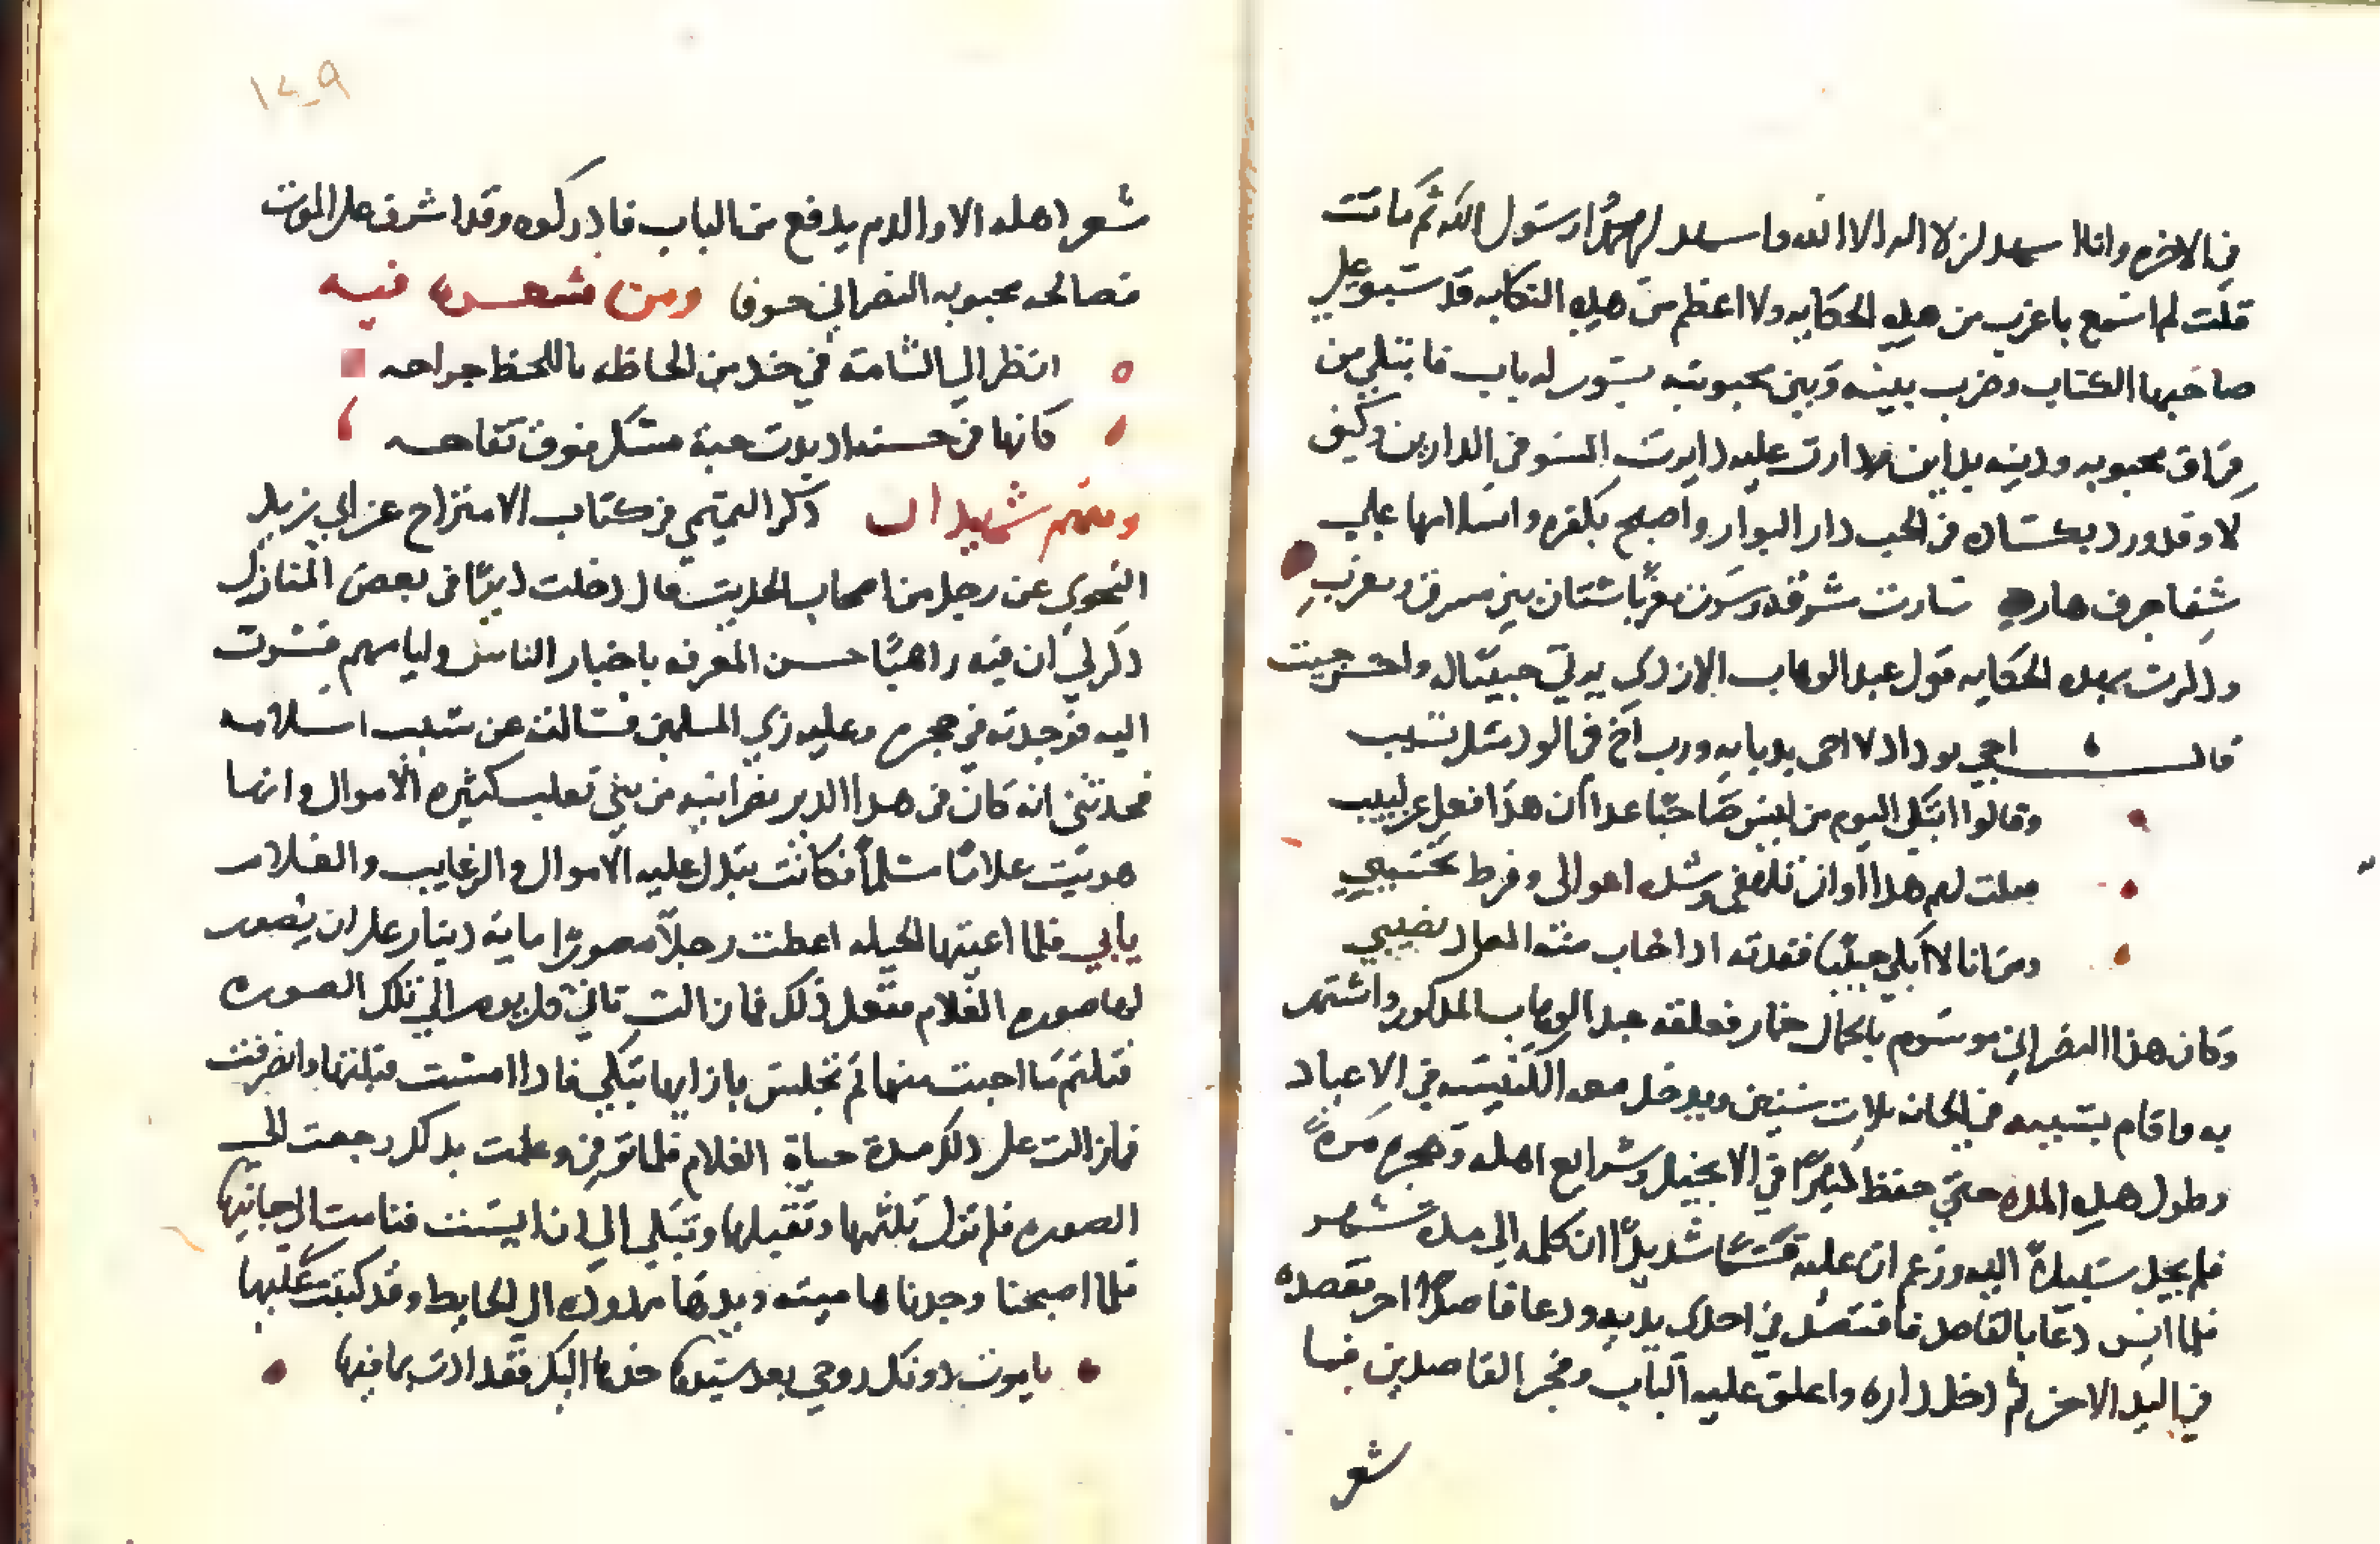 في الاخره وانا اسهد ان لا اله الا الله واسهد ان محمدًا رسول الله ثم ماتت
قلت لم اسمع باغرب من هذه الحكايه ولا اعظم من هذه النكايه قد سبق علي
صاحبها الكتاب وضرب بينه وبين محبوبته بسور له باب فابتلي من
فراق محبوبه ودينه بدارت عليه دايرت السو في الدارين وكيف
لا وقد ورد بكشان في الحب دار البوار واصبح بكفره واسلامها علي
شفا جرف هار سارت مشرقة وسرت مغربًا شتان بين مسرق ومغرب
وذكرت بهذه الحكايه قول عبد الوهاب الازدي يرثي حبيبًا له واحسن حيث
قال اخي بوداد لا اخي بديانه ورب اخ في الود مثل نسيب
وقالوا اتبكي اليوم من ليس صاحبًا غدا ان هذا فعل غير لبيب
فقلت لهم هذا اوان تلهفي وشده اعوالي وفرط نحيبي
ومن انا لا ابكي حبيبًا فقدته اذا خاب منه المعاد نصيبي
وكان هذا النصراني موسوم بالجمال خمار فعلقه عبد الوهاب المذكور واشتهر
به واقام بسببه في الحانه ثلاث سنين ويدخل معه الكنيسه في الاعياد
وطول هذه المده حتي حفظ كثيرًا في الانجيل وشرايع اهله وهجره مرةً
فلم يجد سبيلاً اليه وزعم ان عليه قسمًا شديدًا ان كلمه الي مدة شهر
فلما ايس دعا بالفاصد فافتصد في احدي يديه ودعا فاصدًا اخر ففصده
في اليد الاخرى ثم دخل داره واغلق عليه الباب وفجر الفاصدين فما
شعر
١٢٩
شعر اهله الا والدم يدفع من الباب فادركوه وقد اشرف على الموت
فصالحه محبوبه النصراني خوفا ومن شعره فيه
انظر الي الشامة في خد من الحاظه باللحظ جراحه
كانها في حسنها اذ بدت حبة مسك فوق تفاحه
ومنهم شهيدان ذكر التميمي في كتاب الامتزاج عن ابي زيد
النحوي عن رجل من اصحاب الحديث قال دخلت ديرًا في بعض المنازل
ذكر لي ان فيه راهبًا حسن المعرفه باخبار الناس وايامهم فسرت
اليه فوجدته في حجره وعليه زي المسلمين فسالته عن سبب اسلامه
فحدثني انه كان في هذا الدير نصرانيه من بني تعلب كثيره الاموال وانها
هويت غلامًا مسلمًا فكانت تبذل عليه الاموال والرغايب والغلام
يابي فلما اعيتها الحيله اعطت رجلاً مصورًا ماية دينار على ان يصور
لها صورة الغلام ففعل ذلك فما زالت تاتي كل يوم الي تلك الصوره
فتلثم ما احبت منها ثم تجلس بازايها تبكي فاذا امست قبلتها وانصرفت
فما زالت على ذلك مدة حياة الغلام فلما توفي وعلمت بذلك رجعت الى
الصوره فلم تزل تلثمها وتقبلها وتبكي الي ان امست فنامت الى جانبها
فلما اصبحنا وجدناها ميته ويدها ممدوده الي الحايط وقد كتبت عليها
يا موت دونك روحي بعد سيدها خذها اليك فقد اودت بما فيها